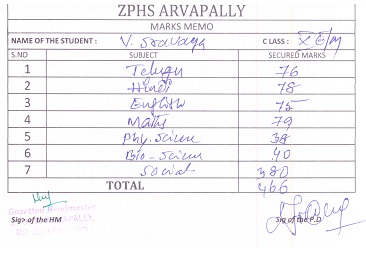 ZPHS ARVAPALLY
MARKS MEMO
NAME OF THE STUDENT : V. Sravaya CLASS : X E/M
S.NO SUBJECT SECURED MARKS
1 Telugu 76
2 Hindi 78
3 English 75
4 Maths 79
5 Phy. Scienc 38
6 Bio-Scienc 40
7 Social 380
TOTAL 466
Gazetted Headmaster
Sig> of the HM Sig of the P.D